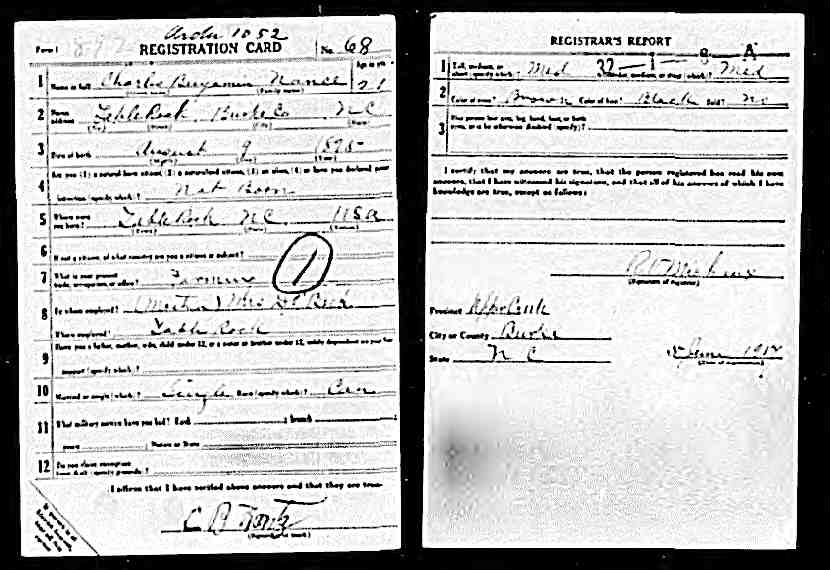 Order 1052
Form 1 REGISTRATION CARD No. 68
1 Name in full Charlie Benjamin Age in yrs. 21
(Family name)
2 Home address Table Rock Burke Co N C
3 Date of birth August 9
(Month) (Day) (Year)
4 Are you (1) a natural born citizen, (2) a naturalized citizen, (3) an alien, (4) or have you declared your
intention (specify which)? Nat Born
5 Where were you born? Table Rock N C USA
6 If not a citizen, of what country are you a citizen or subject?
7 What is your present trade, occupation, or office? Farming
1
8 By whom employed? (Mother) Mrs
Where employed? Table Rock
9 Have you a father, mother, wife, child under 12, or a sister or brother under 12, solely dependent on you for
support (specify which)?
10 Married or single (which)? Single Race (specify which)? Cau
11 What military service have you had? Rank ; branch ;
years ; Nation or State
12 Do you claim exemption from draft (specify grounds)?
I affirm that I have verified above answers and that they are true.
C B
(Signature or mark)
REGISTRAR'S REPORT
32-1-8 A
1 Tall, medium, or short (specify which)? Med Slender, medium, or stout (which)? Med
2 Color of eyes? Brown Color of hair? Black Bald? No
3 Has person lost arm, leg, hand, foot, or both
eyes, or is he otherwise disabled (specify)?
I certify that my answers are true, that the person registered has read his own
answers, that I have witnessed his signature, and that all of his answers of which I have
knowledge are true, except as follows:
(Signature of registrar)
Precinct
City or County Burke
State N C 5 June 1917
(Date of registration)